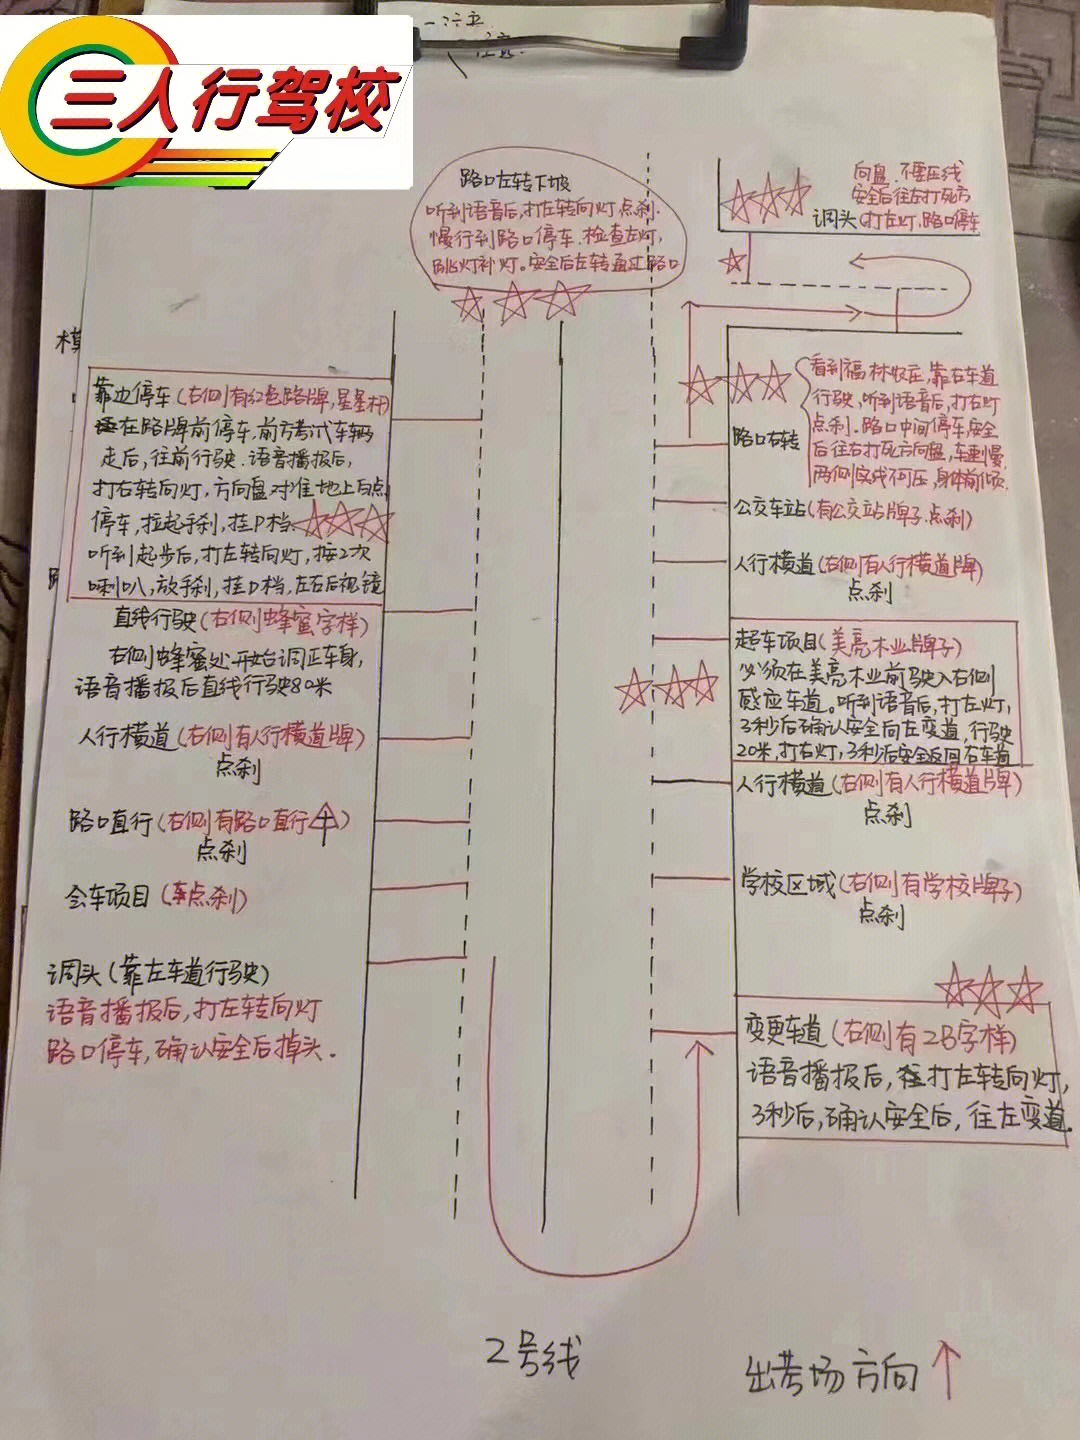 三人行驾校
路口左转下坡
听到语音后,打左转向灯,点刹.
慢行到路口停车.检查左灯,
跳灯补灯。安全后左转通过路口
向盘.不要压线
安全后往左打死方
调头(打左灯,路口停车
靠边停车(右侧有红色路牌,星星杆)
在路牌前停车,前方考试车辆
走后,往前行驶.语音播报后,
打右转向灯,方向盘对准地上白点
停车,拉起手刹,挂P档.
听到起步后,打左转向灯,按2次
喇叭,放手刹,挂D档,左右后视镜
直线行驶(右侧蜂蜜字样)
右侧蜂蜜处开始调正车身,
语音播报后直线行驶80米
人行横道(右侧有人行横道牌)
点刹
路口直行(右侧有路口直行)
点刹
会车项目(点刹)
调头(靠左车道行驶)
语音播报后,打左转向灯
路口停车,确认安全后掉头.
看到福林牧庄,靠右车道
行驶,听到语音后,打右灯
点刹.路口中间停车,安全
后往右打死方向盘,车速慢,
两侧实线不可压,身体前倾.
路口右转
公交车站(有公交站牌子.点刹)
人行横道(右侧有人行横道牌)
点刹
超车项目(美亮木业牌子)
必须在美亮木业前驶入右侧
感应车道。听到语音后,打左灯,
3秒后确认安全向左变道,行驶
20米,打右灯,3秒后安全返回右车道
人行横道(右侧有人行横道牌)
点刹
学校区域(右侧有学校牌子)
点刹
变更车道(右侧有2B字样)
语音播报后,打左转向灯,
3秒后,确认安全后,往左变道.
2号线
出考场方向